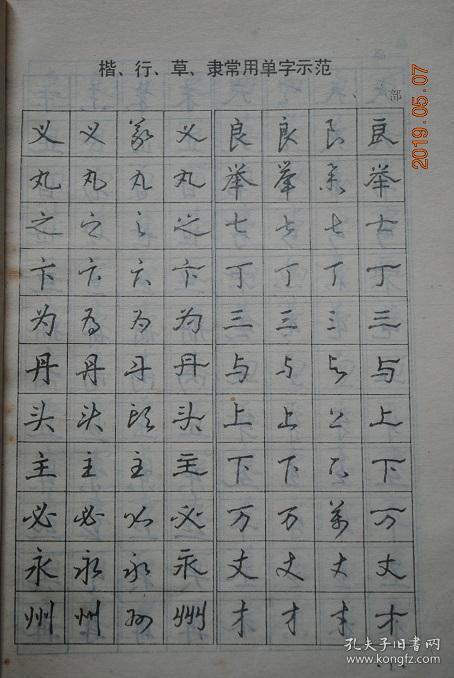 楷、行、草、隶常用单字示范
、部
义 义 义 义 良 良 良 良
丸 丸 丸 丸 举 举 举 举
之 之 之 之 七 七 七 七
卞 卞 卞 卞 丁 丁 丁 丁
为 为 为 为 三 三 三 三
丹 丹 丹 丹 与 与 与 与
头 头 头 头 上 上 上 上
主 主 主 主 下 下 下 下
必 必 必 必 万 万 萬 万
永 永 永 永 丈 丈 丈 丈
州 州 州 州 才 才 才 才
2019.05.07
孔夫子旧书网
kongfz.com